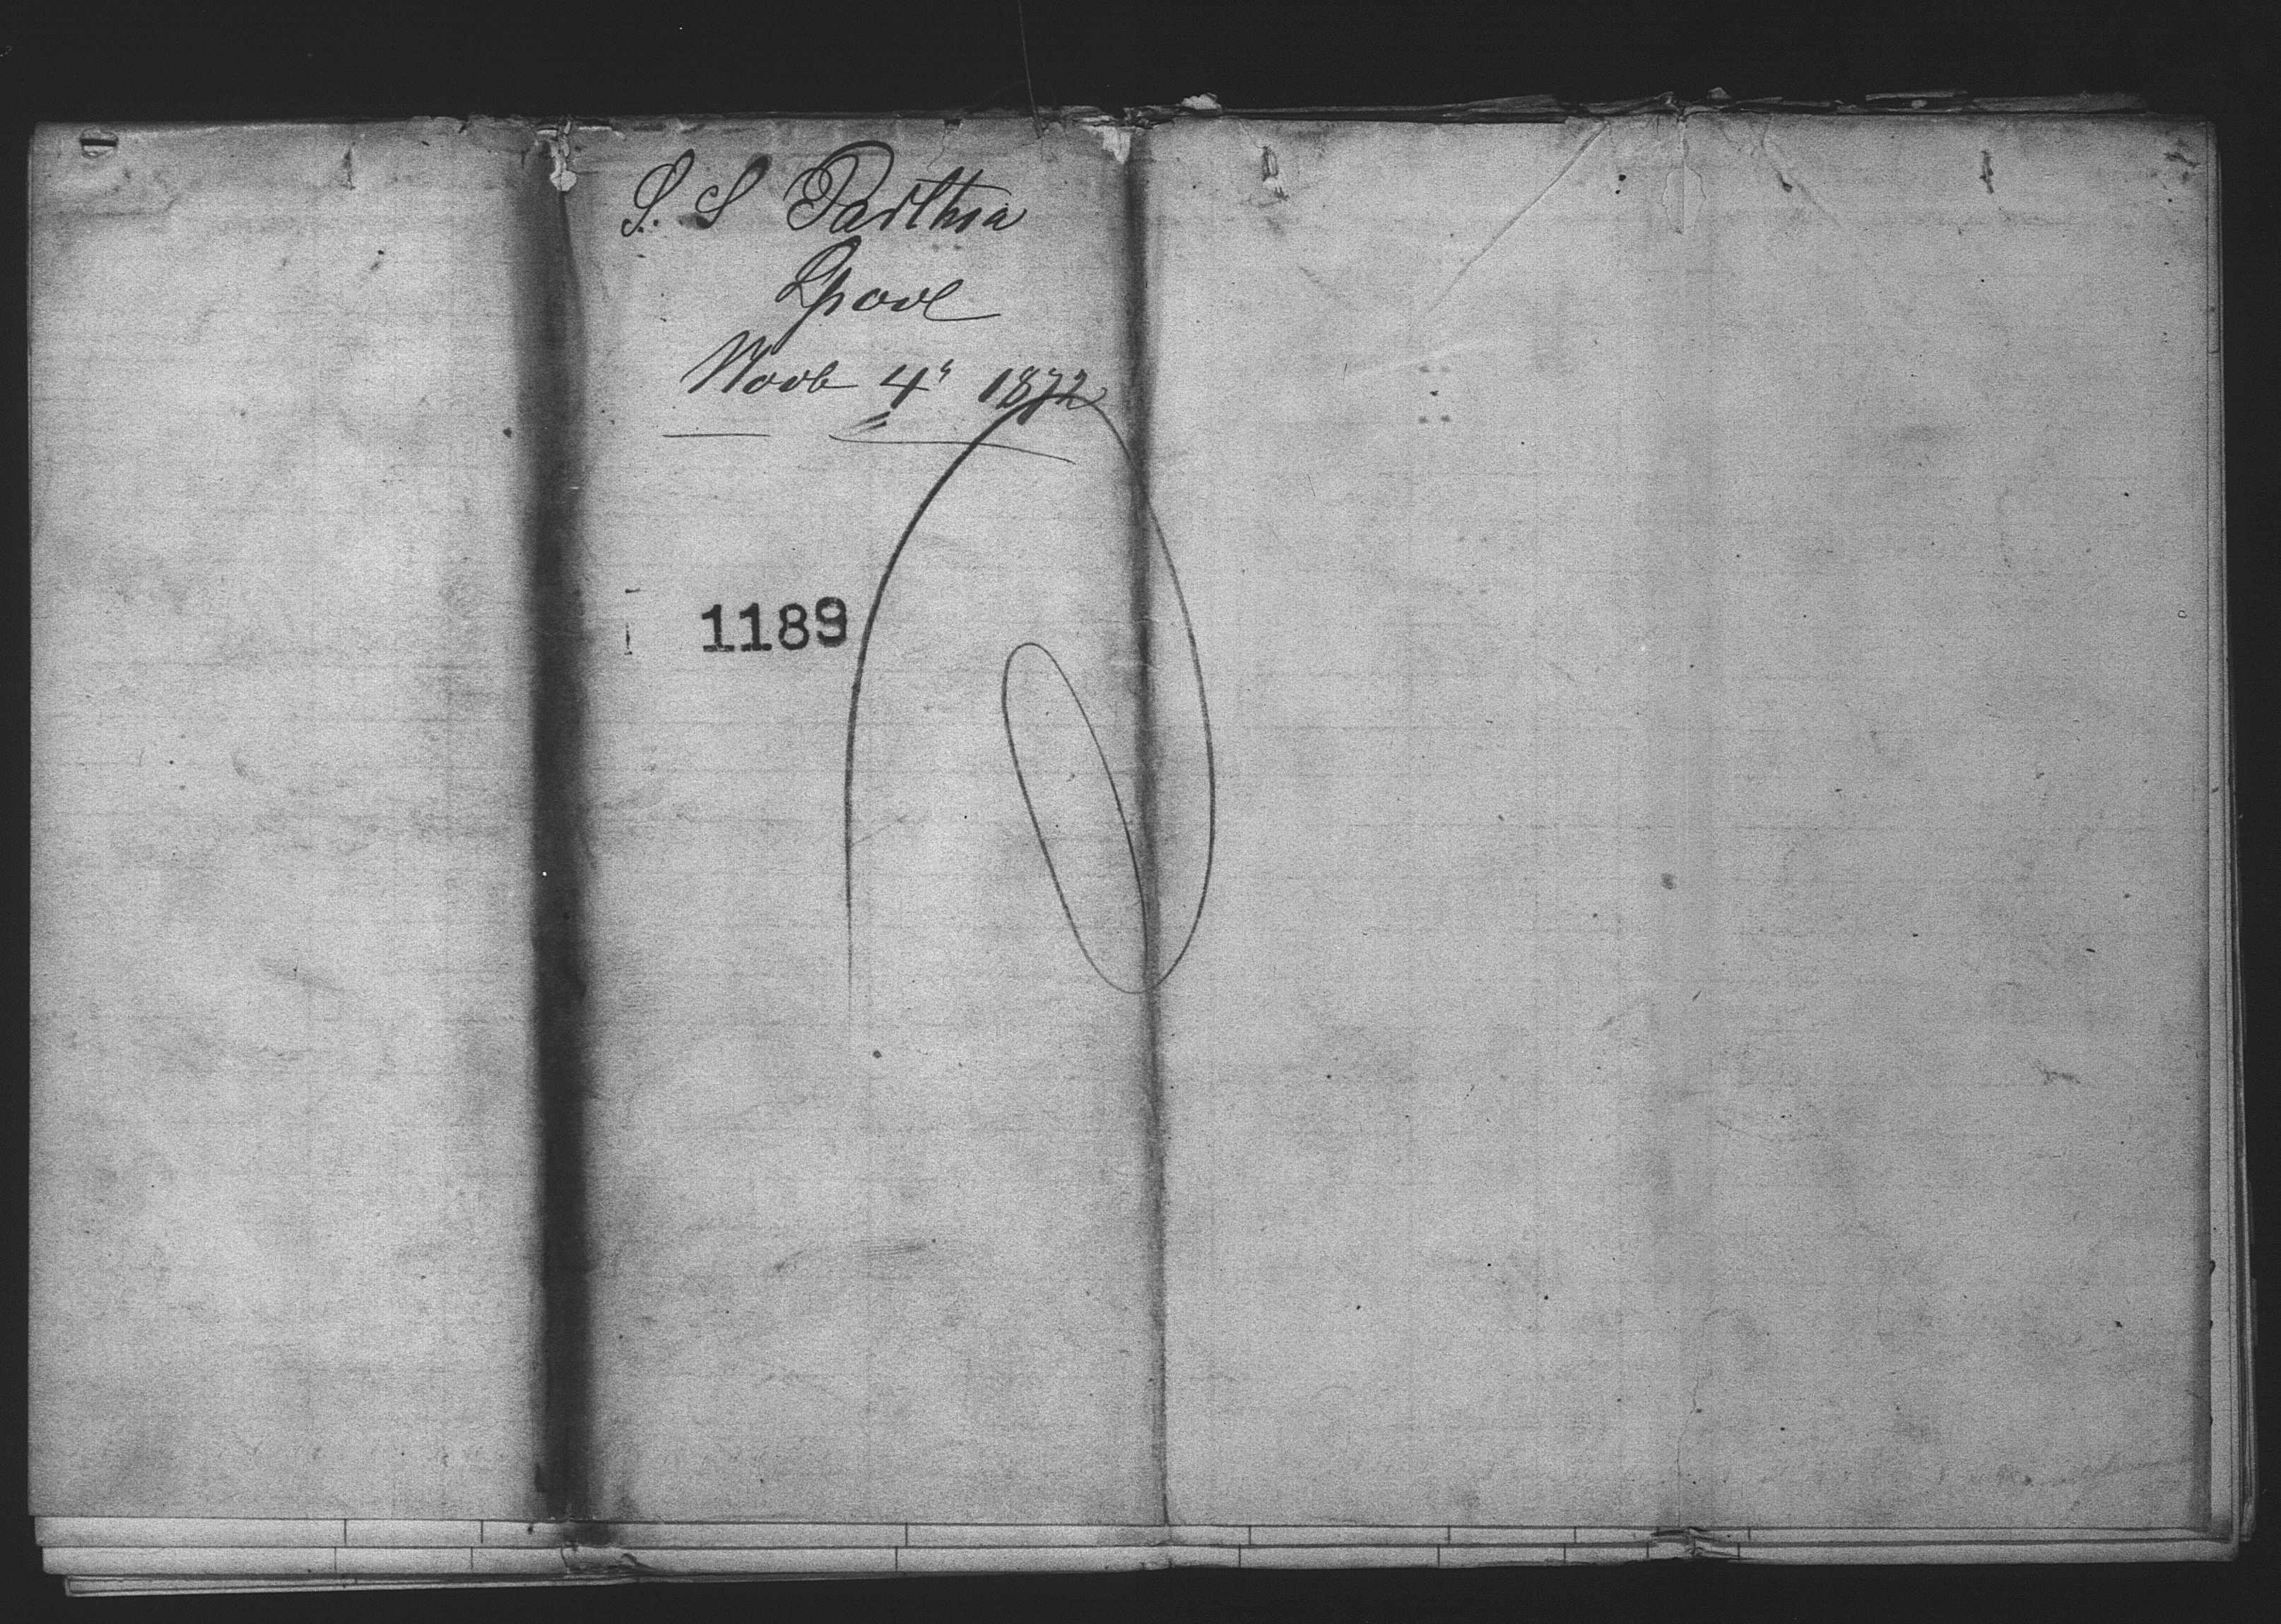 S. S Parthia
Lpool
Novb 4" 1872
1189